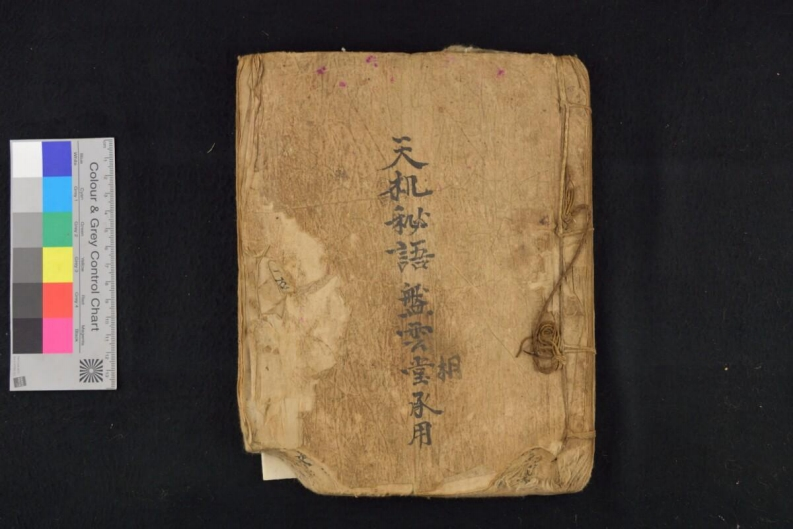 天机秘語盤雲堂承用
相
Colour & Grey Control Chart